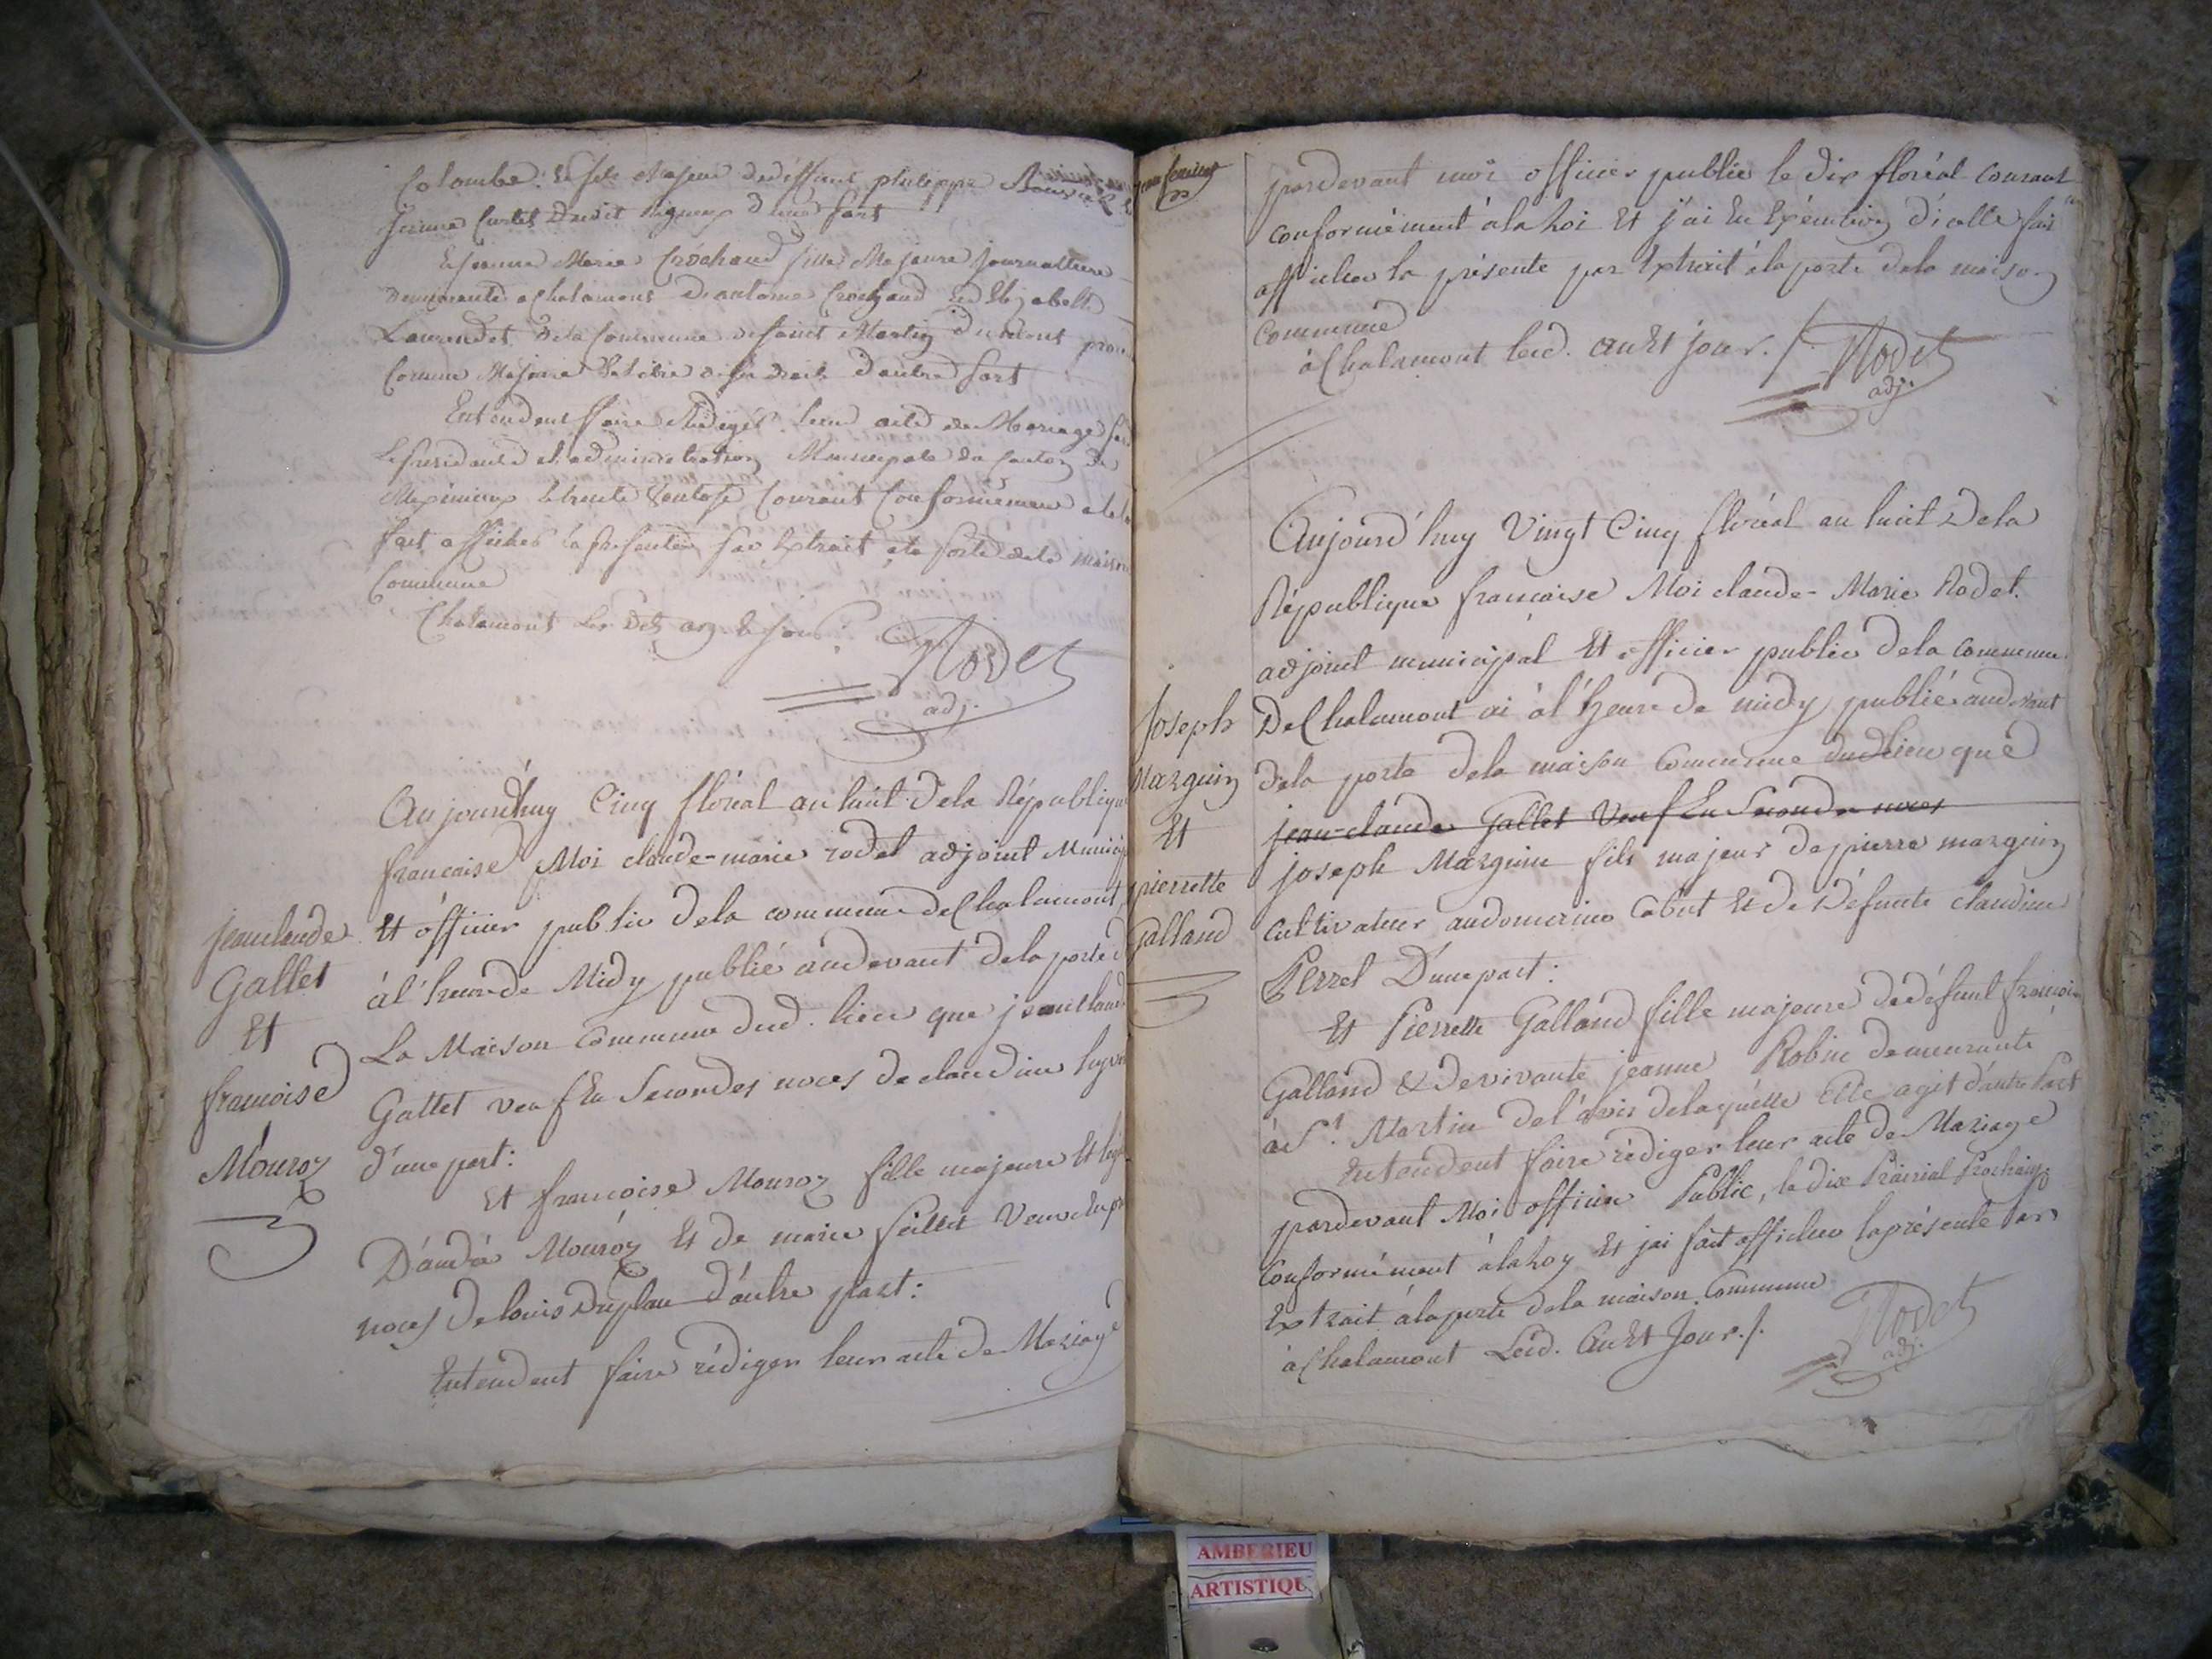 Colombe: Et fils Majeur de deffunt philippe
jeanne Curtet d'une part
Et jeanne Marie Crochaud fille Majeure journalliere
demeurante a Chalamont d'antoine Crochaud Et Elizabeth
de la Commune de saint Martin du Mont
Comme Majeure Et libre de ses droits d'autre part
Entendent faire Rediger leur acte de Mariage
administration Municipale du Canton de
Meximieux le trente Ventose Courant Conformément a la
fait afficher la presente par Extrait a la porte de la maison
Commune
Chalamont Les dits an & jour
Rodet
adj.
Aujourd'huy Cinq floréal an huit de la République
francaise Moi claude-marie rodet adjoint
Et officier public de la commune de Chalamont
à l'heure de Midy publié audevant de la porte
La Maison Commune dud. lieu que jean claude
Gallet veuf En Secondes noces de claudine
d'une part:
Et francoise Mouroz fille majeure Et
D'andré Mouroz Et de marie veuve
noces De louis Duplan d'autre part:
Entendent faire rédiger leur acte de Mariage
jeanclaude
Gallet
Et
francoise
Mouroz
pardevant moi officier public le dix floréal courant
conformément à la Loi Et j'ai En Exécution d'icelle fait
afficher la présente par Extrait à la porte dela maison
Commune
à Chalamont led. an Et jour./.
Rodet
adj.
Aujourd'huy Vingt Cinq floréal an huit De la
République francaise Moi claude-Marie Rodet
adjoint municipal Et officier public dela commune
De Chalamont ai à l'heure de midy publié audevant
dela porte dela maison Commune dud lieu que
jean-claude Gallet Veuf En Seconde noces
joseph Marguin fils majeur de pierre marguin
Cultivateur au domaine Et de Défunte claudine
Perret D'une part:
Et Pierrette Galland fille majeure de défunt francois
Galland & de vivante jeanne Robin demeurante
à St. Martin de l'avis de laquelle Elle agit d'autre Part
Entendent faire rédiger leur acte de Mariage
pardevant Moi officier Public, le dix Prairial Prochain
Conformément à la Loy Et jai fait afficher la présente par
Extrait à la porte dela maison Commune
à Chalamont Led. An Et Jour./.
Rodet
adj.
Joseph
Marguin
Et
pierrette
Galland
AMBERIEU
ARTISTIQU